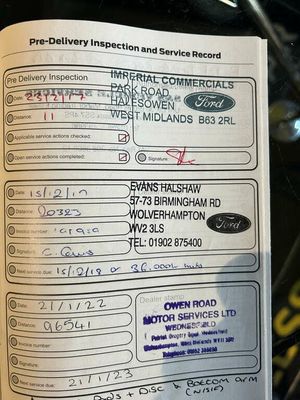 Pre-Delivery Inspection and Service Record
Pre Delivery Inspection
IMPERIAL COMMERCIALS
PARK ROAD
HALESOWEN
WEST MIDLANDS B63 2RL
Ford
Date: 23/2/17
Distance: 11
Applicable service actions checked:
Open service actions completed:
Signature:
Date: 15/12/17
Distance:
Invoice number:
Signature:
Next service due: 15/12/18 or 36,000
EVANS HALSHAW
57-73 BIRMINGHAM RD
WOLVERHAMPTON
WV2 3LS
TEL: 01902 875400
Ford
Date: 21/1/22
Distance: 96541
Invoice number:
Signature:
Next service due: 21/1/23
Dealer stamp
OWEN ROAD
MOTOR SERVICES LTD
WEDNESFIELD
Pads + Disc & Bottom arm
(N/S/F)